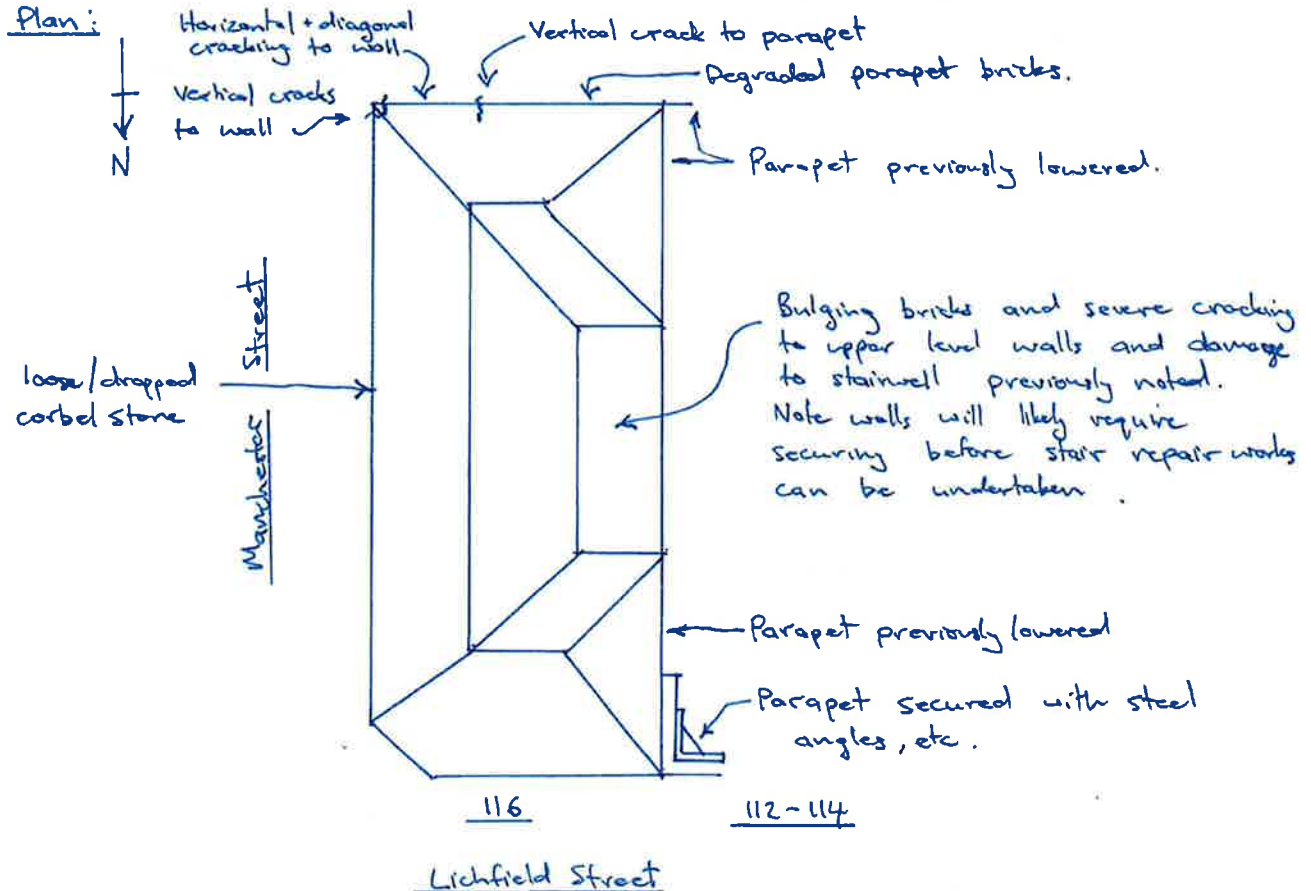 Plan:
N
Horizontal + diagonal
cracking to wall
Vertical crack to parapet
Degraded parapet bricks.
Vertical cracks
to wall
Parapet previously lowered.
Manchester Street
loose/dropped
corbel stone
Bulging bricks and severe cracking
to upper level walls and damage
to stairwell previously noted.
Note walls will likely require
securing before stair repair works
can be undertaken.
Parapet previously lowered
Parapet secured with steel
angles, etc.
116
112-114
Lichfield Street